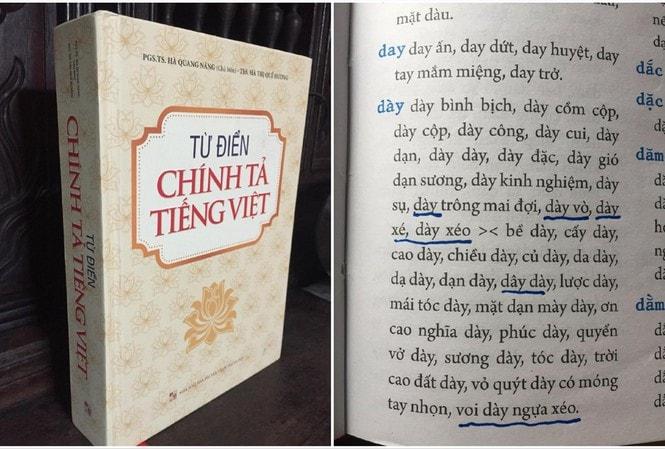 PGS.TS. HÀ QUANG NĂNG (Chủ biên) - THS. HÀ THỊ QUẾ HƯƠNG
TỪ ĐIỂN
CHÍNH TẢ
TIẾNG VIỆT
TỪ ĐIỂN
CHÍNH TẢ TIẾNG VIỆT
mặt dàu.
day day ấn, day dứt, day huyệt, day
tay mắm miệng, day trở.
dày dày bình bịch, dày cồm cộp,
dày cộp, dày công, dày cui, dày
dạn, dày dày, dày đặc, dày gió
dạn sương, dày kinh nghiệm, dày
sụ, dày trông mai đợi, dày vò, dày
xé, dày xéo >< bề dày, cấy dày,
cao dày, chiều dày, củ dày, da dày,
dạ dày, dạn dày, dây dày, lược dày,
mái tóc dày, mặt dạn mày dày, ơn
cao nghĩa dày, phúc dày, quyển
vở dày, sương dày, tóc dày, trời
cao đất dày, vỏ quýt dày có móng
tay nhọn, voi dày ngựa xéo.
dắc
dặc
dăm
dằm